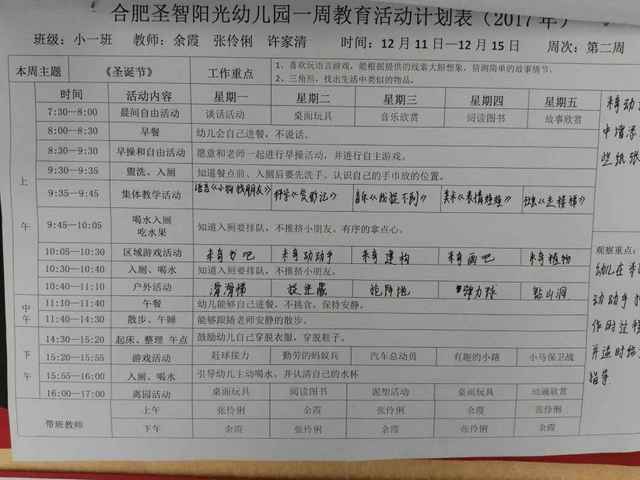 合肥圣智阳光幼儿园一周教育活动计划表（2017年）
班级：小一班 教师：余霞 张伶俐 许家清 时间：12月11日—12月15日 周次：第二周
本周主题 《圣诞节》 工作重点 1、喜欢玩语言游戏，能根据提供的线索大胆想象，猜测简单的故事情节。
2、三角形，找出生活中类似的物品。
时间 活动内容 星期一 星期二 星期三 星期四 星期五
上午
7:30—8:00 晨间自由活动 谈话活动 桌面玩具 音乐欣赏 阅读图书 故事欣赏
8:00—8:30 早餐 幼儿会自己进餐，不说话。
8:30—9:30 早操和自由活动 愿意和老师一起进行早操活动，并进行自主游戏。
9:30—9:35 盥洗、入厕 知道餐点前、入厕后要先洗手，认识自己的手巾放的位置。
9:35—9:45 集体教学活动 语言《小狗找朋友》 科学《变影记》 音乐 美术《表情娃娃》 《走楼梯》
9:45—10:05 喝水入厕
吃水果 知道入厕要排队，不推挤小朋友。有序的拿点心。
10:05—10:30 区域游戏活动 来奇力吧 来奇动动手 来奇建构 来奇画吧 来奇植物
10:30—10:40 入厕、喝水 知道入厕要排队，不推挤小朋友。
10:40—11:10 户外活动 滑滑梯 钻山洞
中午
11:10—11:40 午餐 幼儿能够自己进餐，不挑食，保持安静。
11:40—14:30 散步、午睡 能够跟随老师安静的散步。
下午
14:30—15:20 起床、整理 午点 鼓励幼儿自己穿脱衣服，穿脱鞋子。
15:20—15:55 游戏活动 赶球接力 勤劳的蚂蚁兵 汽车总动员 有趣的小路 小马保卫战
15:55—16:00 入厕、喝水 引导幼儿主动喝水，并认清自己的水杯
16:00—17:00 离园活动 桌面玩具 阅读图书 泥塑活动 桌面玩具 动画欣赏
带班教师 上午 张伶俐 余霞 张伶俐 余霞 张伶俐
下午 余霞 张伶俐 余霞 张伶俐 余霞
来奇动
中增添
些纸张
观察重点：
幼儿在来
动动手
作时过程
并适时给予
指导